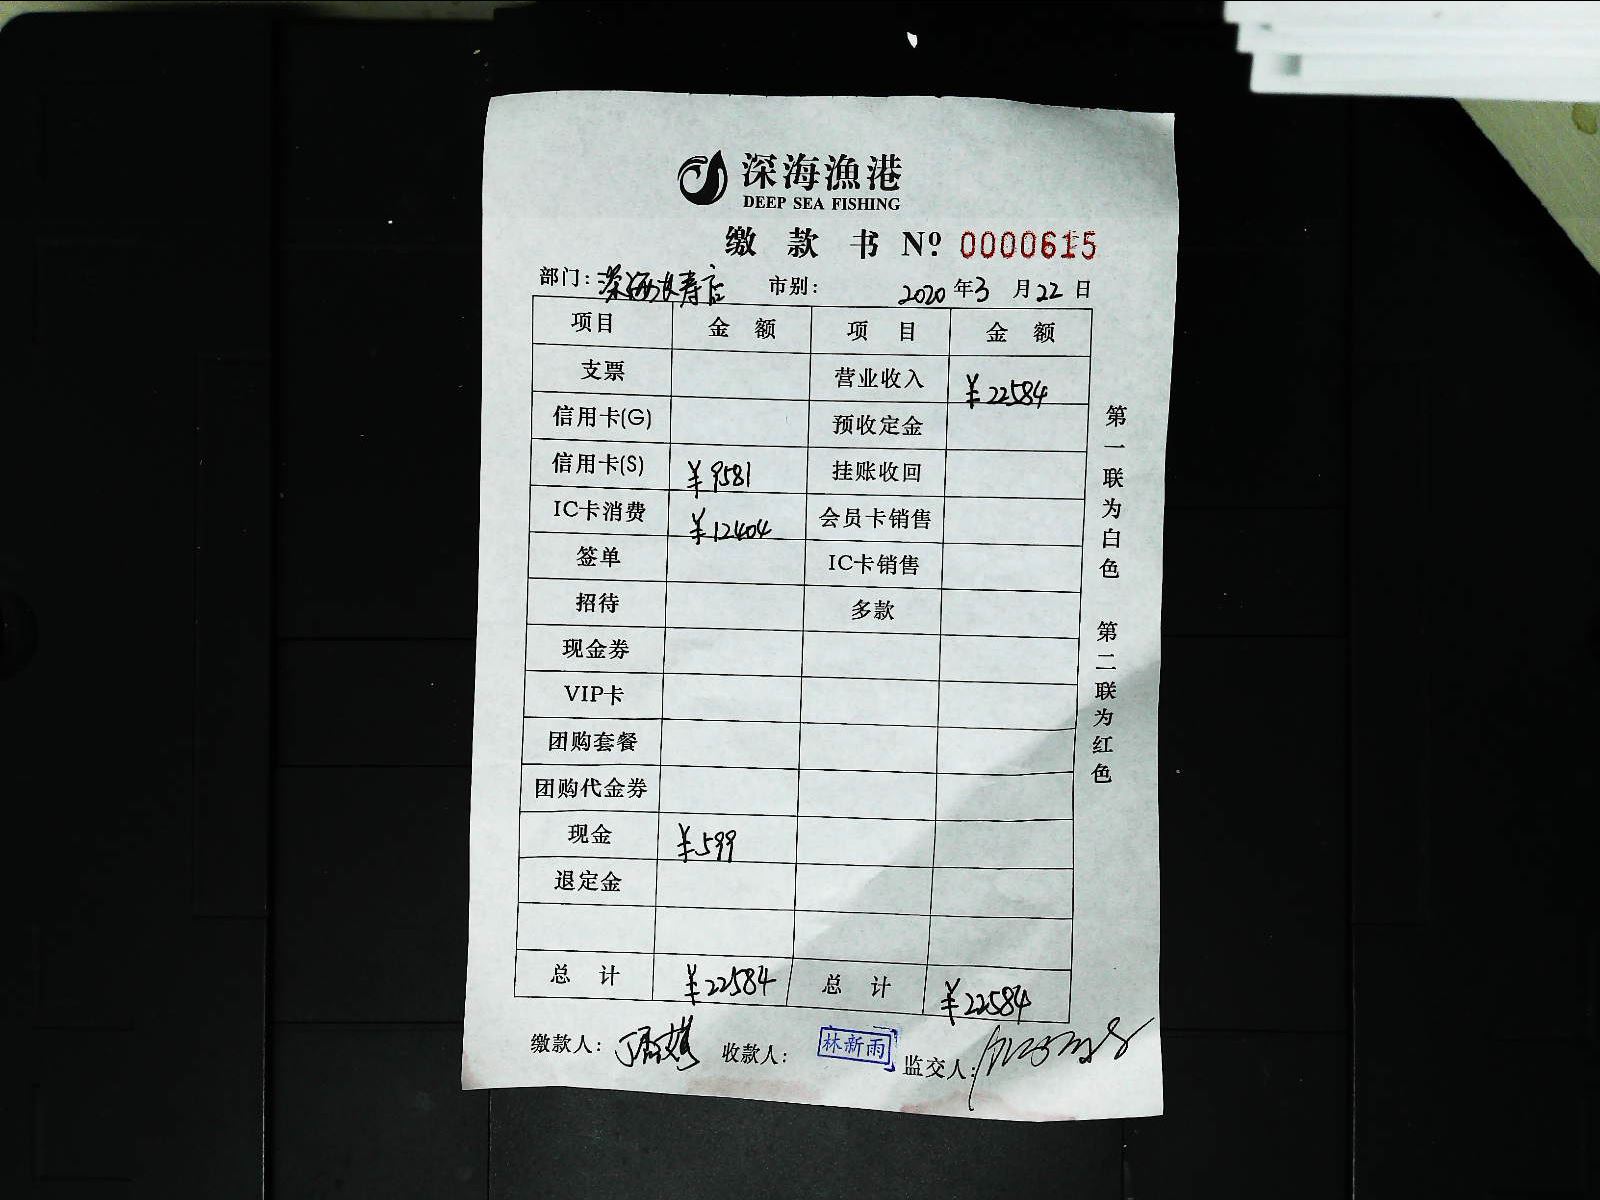 深海漁港
DEEP SEA FISHING
缴款书 Nº: 0000615
部门: 深海长寿店 市别: 2020年3月22日
项目 金额 项目 金额
支票 营业收入 ¥22584
信用卡(G) 预收定金
信用卡(S) ¥9581 挂账收回
IC卡消费 ¥12404 会员卡销售
签单 IC卡销售
招待 多款
现金券
VIP卡
团购套餐
团购代金券
现金 ¥599
退定金
总计 ¥22584 总计 ¥22584
缴款人: 收款人: 林新雨 监交人:
第一联为白色 第二联为红色